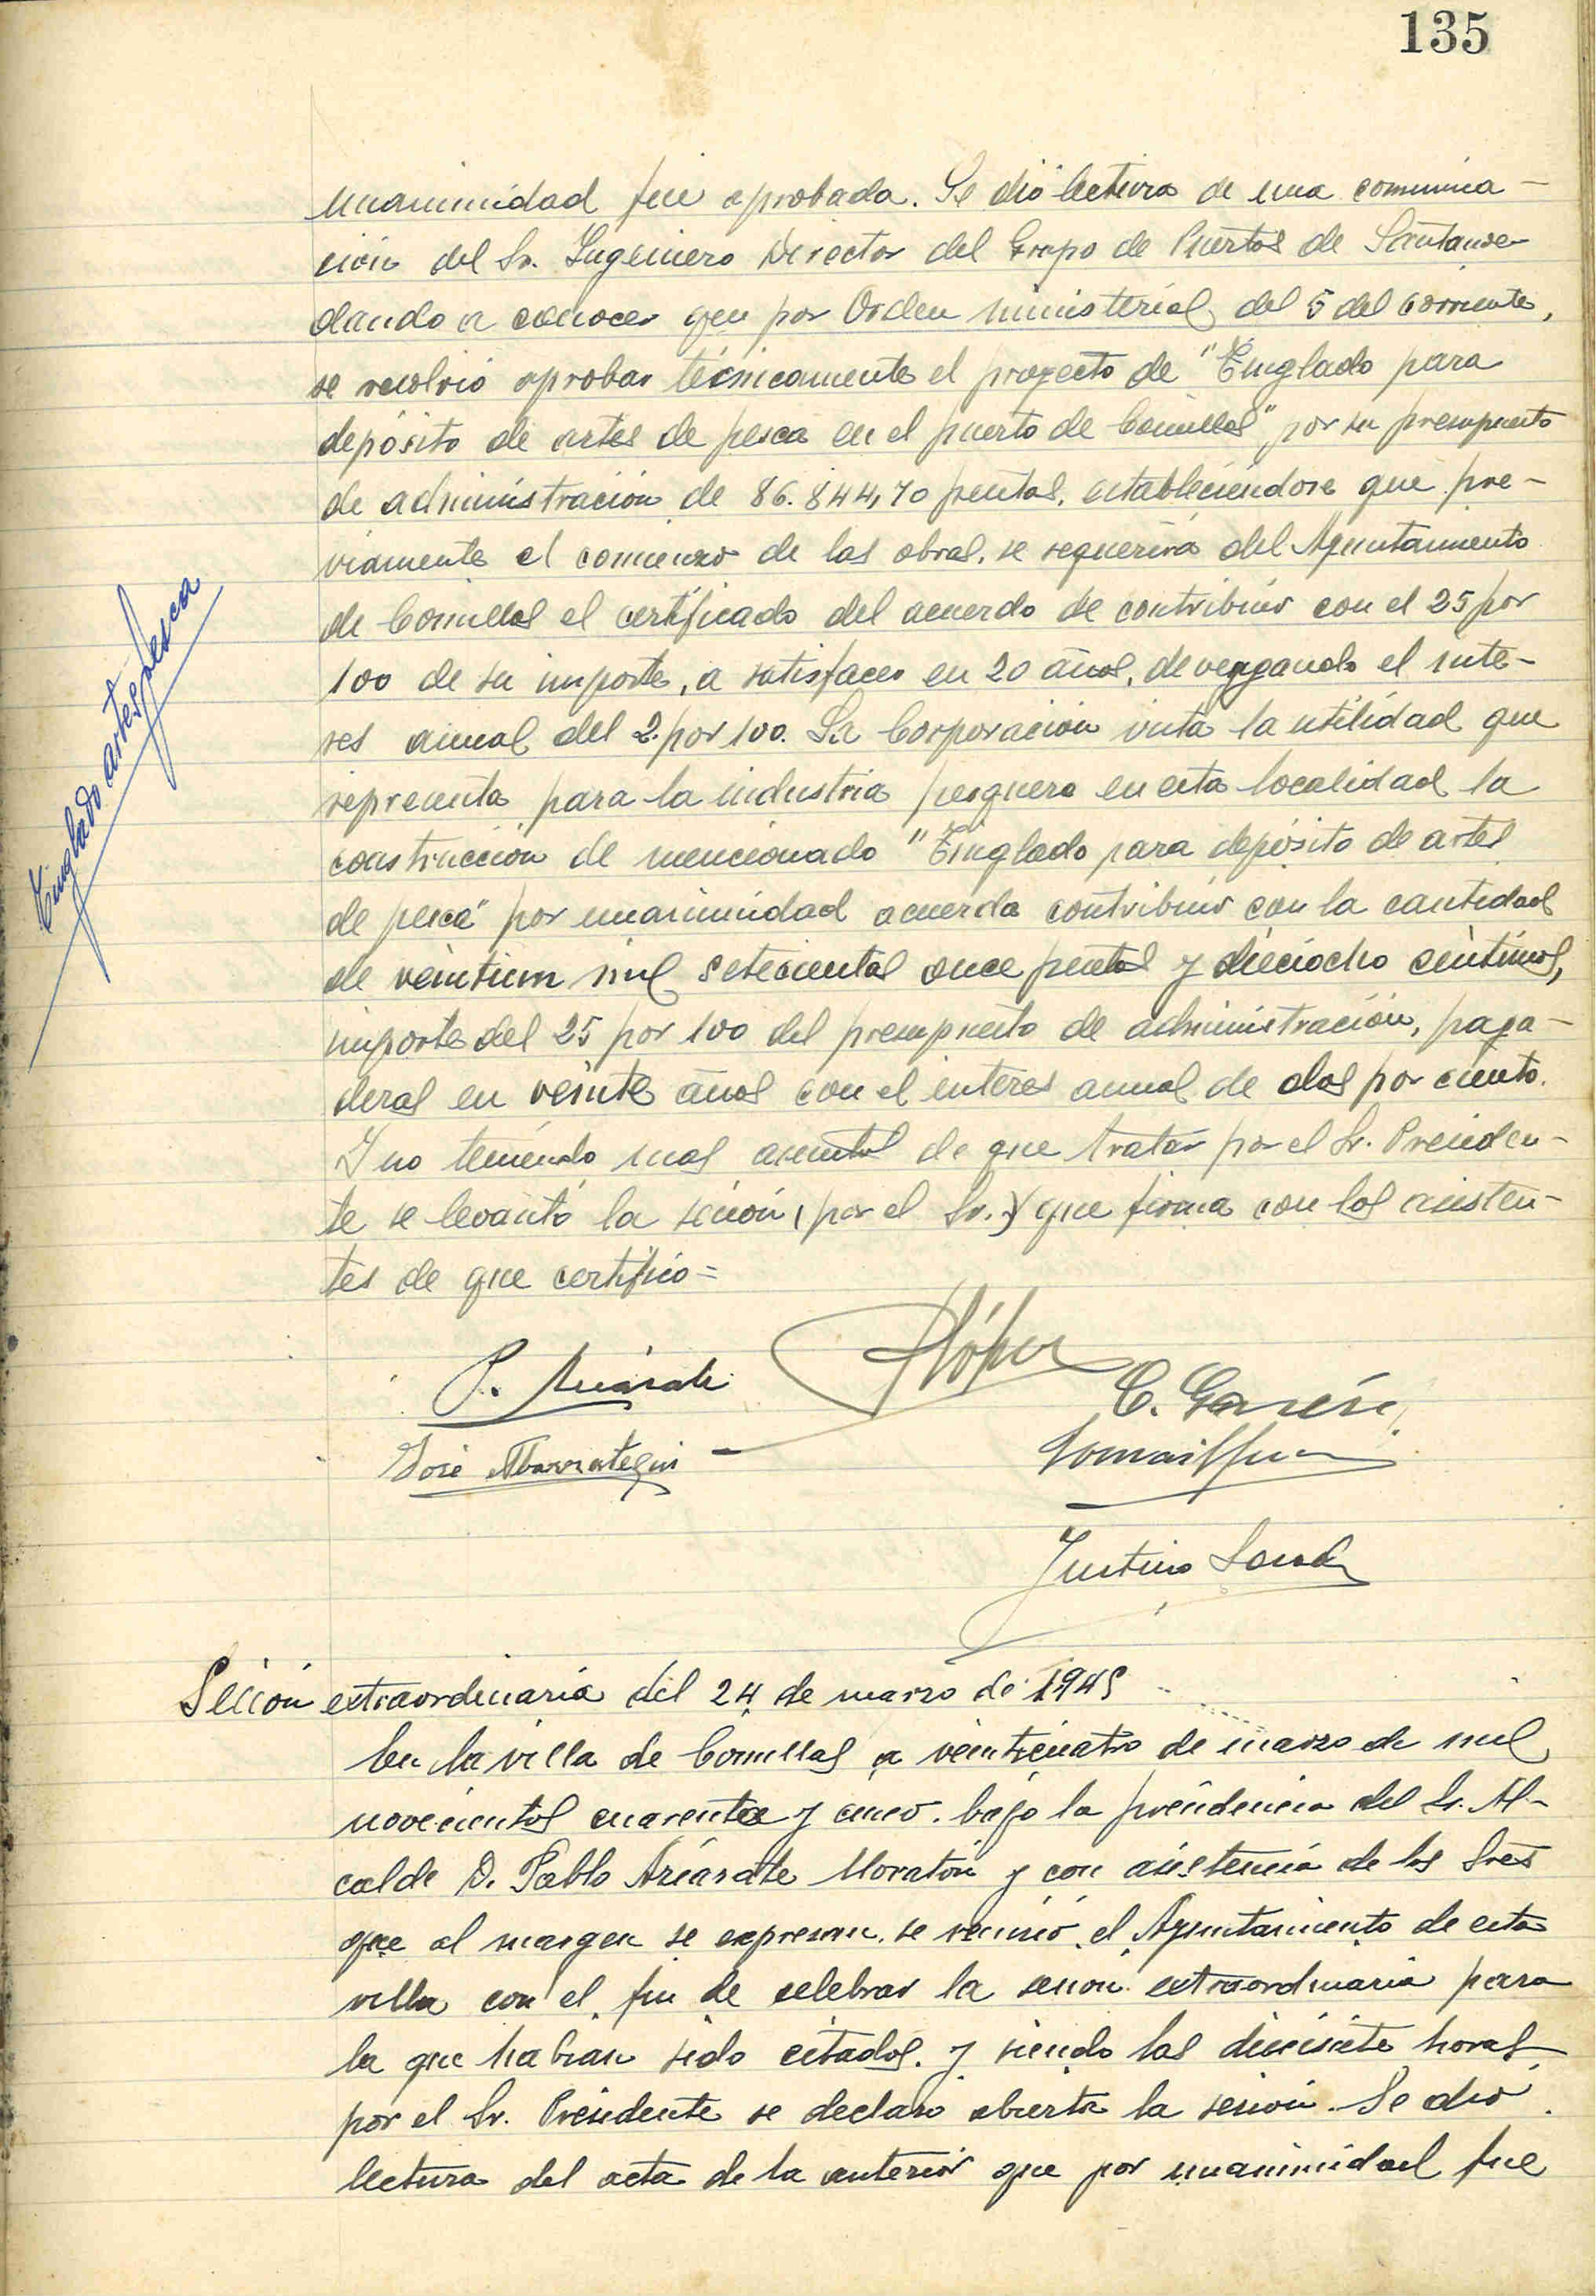 135
unanimidad fue aprobada. Se dió lectura de una comunica-
ción del Sr. Ingeniero Director del Grupo de Puertos de Santander
dando a conocer que por Orden ministerial del 5 del corriente,
se resolvió aprobar técnicamente el proyecto de "Tinglado para
depósito de artes de pesca en el puerto de Comillas" por su presupuesto
de administración de 86.844,70 pesetas, estableciéndose que pre-
viamente el comienzo de las obras, se requerirá del Ayuntamiento
de Comillas el certificado del acuerdo de contribuir con el 25 por
100 de su importe, a satisfacer en 20 años, devengando el inte-
res anual del 2 por 100. La Corporación vista la utilidad que
representa para la industria pesquera en esta localidad la
construcción de mencionado "Tinglado para depósito de artes
de pesca" por unanimidad acuerda contribuir con la cantidad
de veintiun mil setecientas once pesetas y dieciocho centimos,
importe del 25 por 100 del presupuesto de administración, paga-
deras en veinte años con el interes anual de dos por ciento.
Y no teniendo mas asuntos de que tratar por el Sr. Presiden-
te se levantó la sesión (por el Sr.) que firma con los asisten-
tes de que certifico=
Tinglado artes pesca
P. Azcárate
López
C. García
José Ibarrategui
Justino
Sesión extraordinaria del 24 de marzo de 1945
En la villa de Comillas a veinticuatro de marzo de mil
novecientos cuarenta y cinco. bajo la presidencia del Sr. Al-
calde D. Pablo Azcárate Moratón y con asistencia de los Sres
que al margen se expresan, se reunió el Ayuntamiento de esta
villa con el fin de celebrar la sesion extraordinaria para
la que habian sido citados. y siendo las diecisiete horas
por el Sr. Presidente se declaró abierta la sesión. Se dió
lectura del acta de la anterior que por unanimidad fue